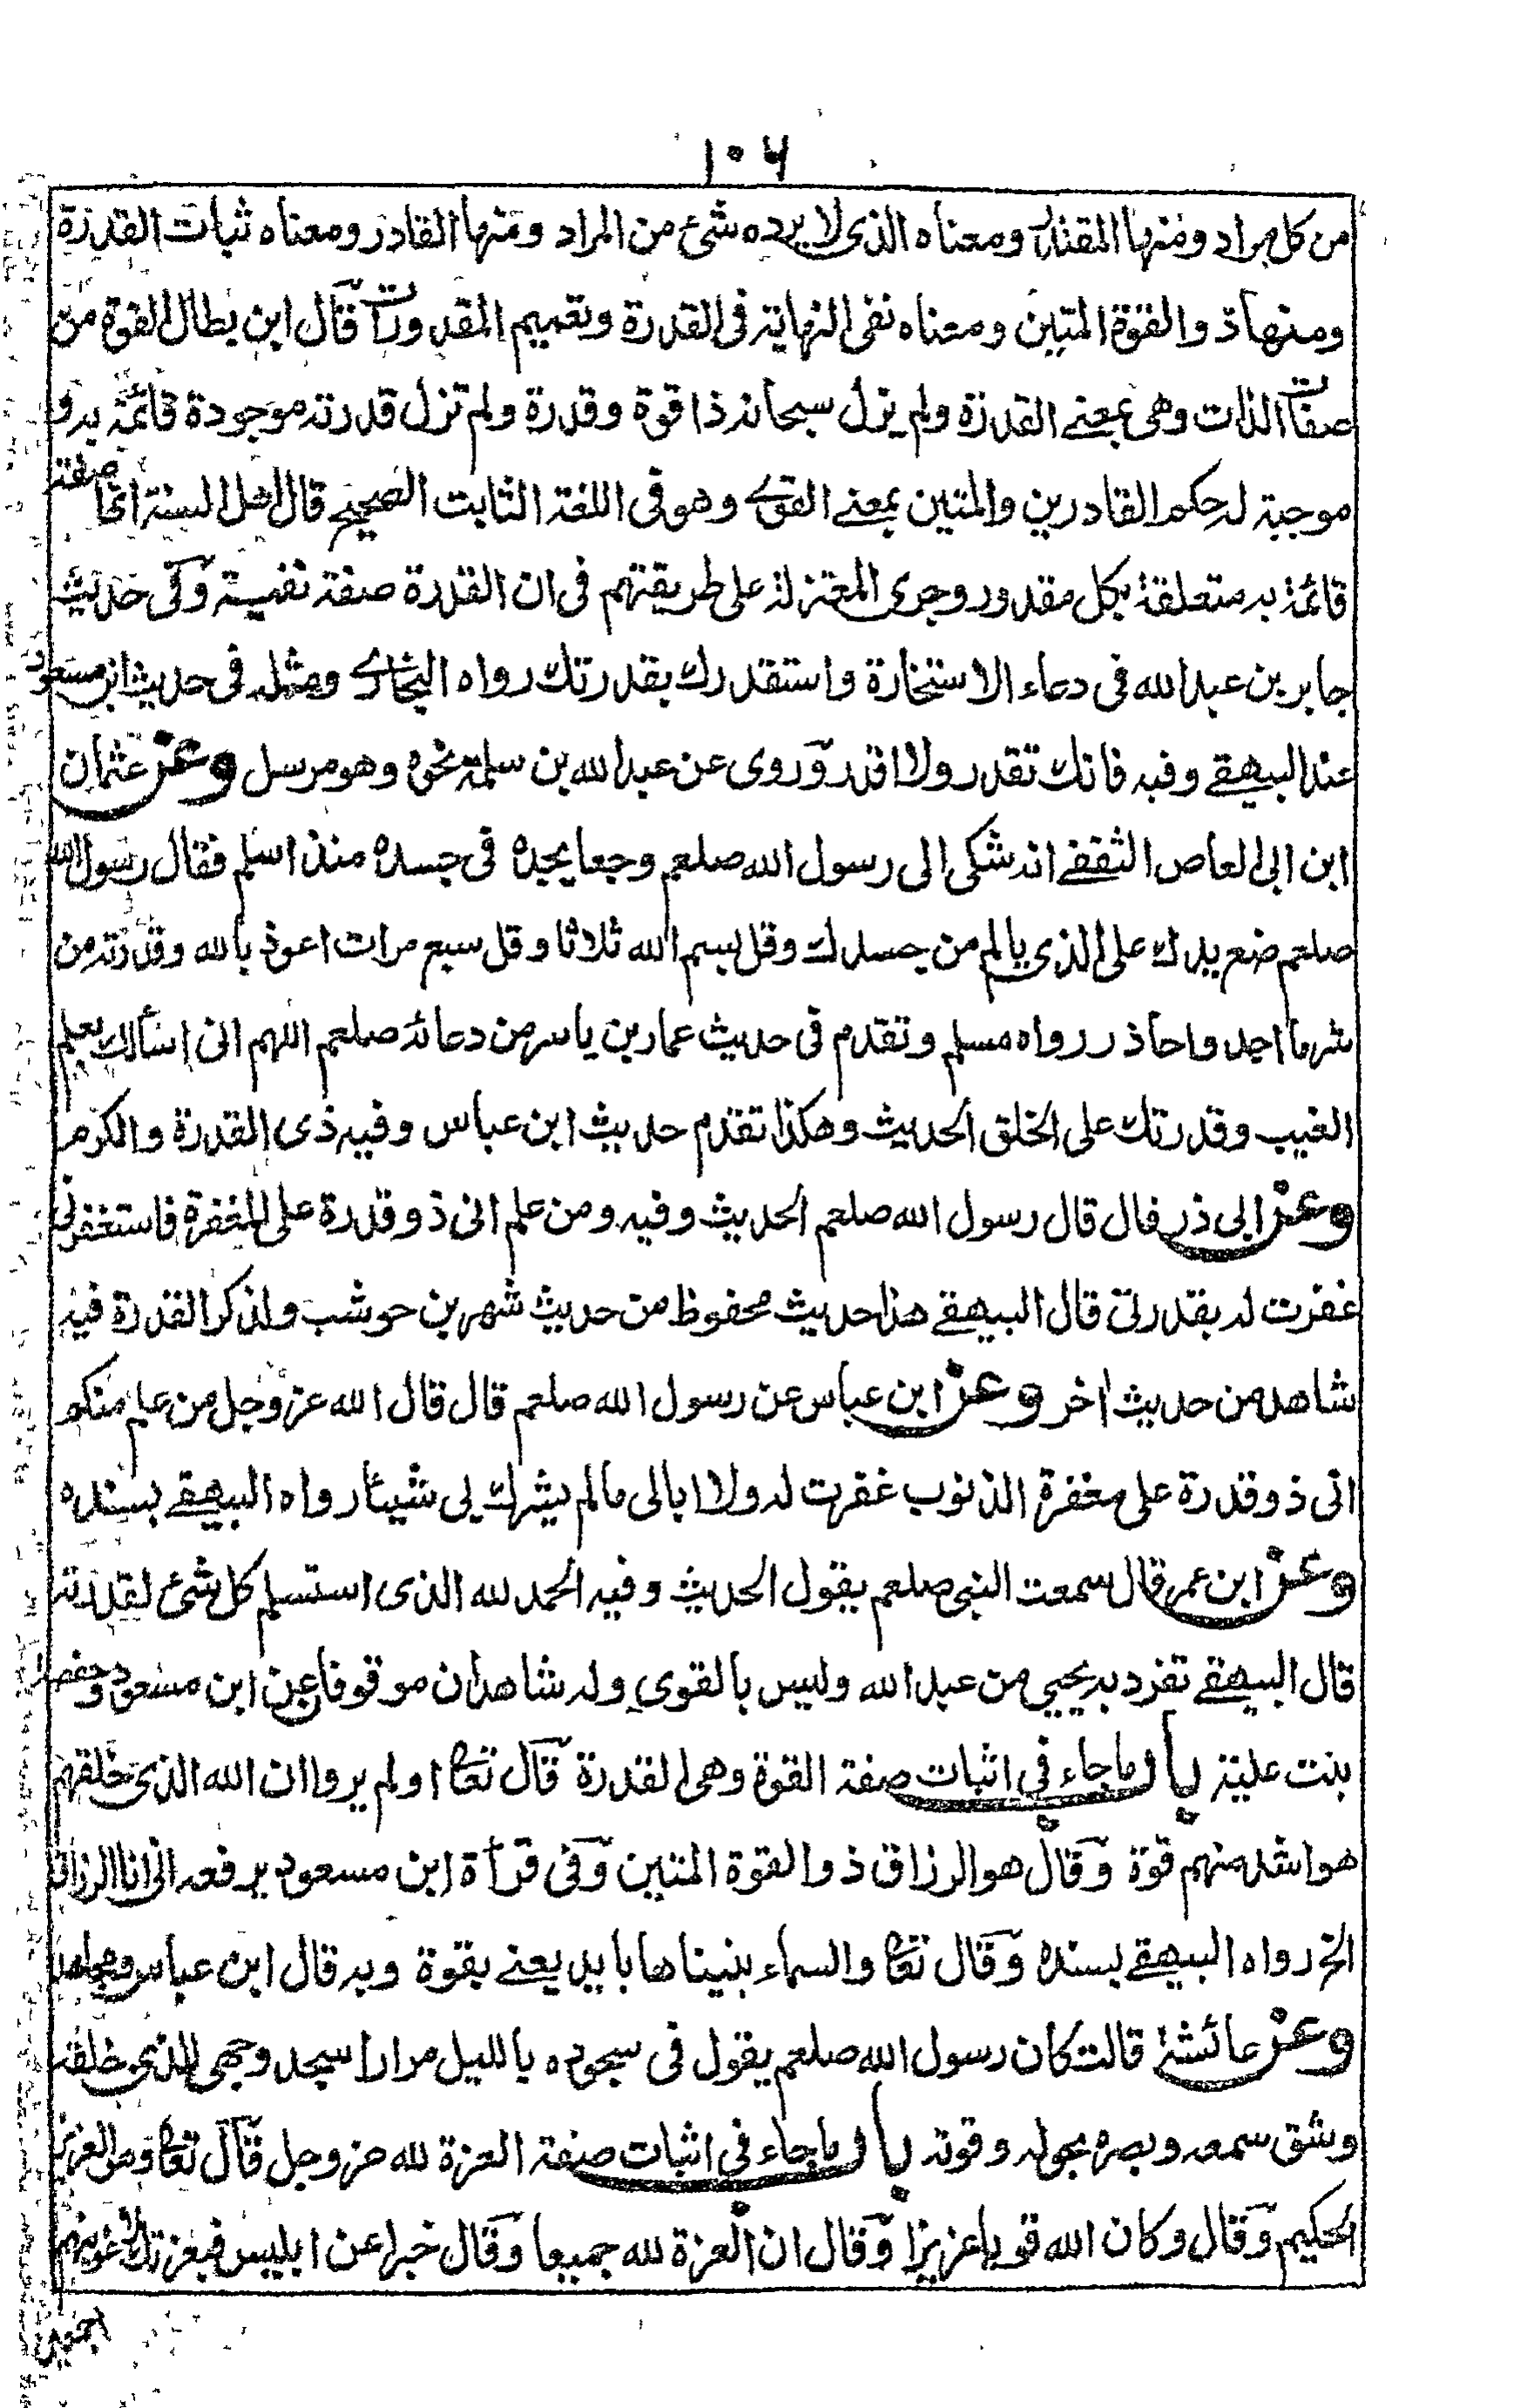 ۱۰۶
من كل مراد ومنها المقتدر ومعناه الذى لا يرده شئ من المراد ومنها القادر ومعناه ثبات القدرة
ومنها ذو القوة المتين ومعناه نفى النهاية فى القدرة وتعميم المقدورات قال ابن بطال القوة من
صفات الذات وهى بمعنے القدرة ولم يزل سبحانه ذا قوة وقدرة ولم تزل قدرته موجودة قائمة به و
موجبة له حكم القادرين والمتين بمعنے القوے وهو فى اللغة الثابت الصحيح قال اهل السنة انها صفة
قائمة به متعلقة بكل مقدور وجرى المعتزلة على طريقتهم فى ان القدرة صفة نفسية وفى حديث
جابر بن عبد الله فى دعاء الاستخارة واستقدرك بقدرتك رواه البخارے ومثله فى حديث ابن مسعود
عند البيهقے وفيه فانك تقدر ولا اقدر وروى عن عبد الله بن سلمة نحوه وهو مرسل وعن عثمان
ابن ابى العاص الثقفے انه شكى الى رسول الله صلعم وجعا يجده فى جسده منذ اسلم فقال رسول الله
صلعم ضع يدك على الذى يالم من جسدك وقل بسم الله ثلاثا وقل سبع مرات اعوذ بالله وقدرته من
شر ما اجد واحاذر رواه مسلم وتقدم فى حديث عمار بن ياسر من دعائه صلعم اللهم انى اسألك بعلم
الغيب وقدرتك على الخلق الحديث وهكذا تقدم حديث ابن عباس وفيه ذى القدرة والكرم
وعن ابى ذر قال قال رسول الله صلعم الحديث وفيه ومن علم انى ذو قدرة على المغفرة فاستغفرنى
غفرت له بقدرتى قال البيهقے هذا حديث محفوظ من حديث شهر بن حوشب ولذكر القدرة فيه
شاهد من حديث اخر وعن ابن عباس عن رسول الله صلعم قال قال الله عز وجل من علم منكم
انى ذو قدرة على مغفرة الذنوب غفرت له ولا ابالى مالم يشرك بى شيئا رواه البيهقے بسنده
وعن ابن عمر قال سمعت النبى صلعم يقول الحديث وفيه الحمد لله الذى استسلم كل شئ لقدرته
قال البيهقے تفرد به يحيى من عبد الله وليس بالقوى وله شاهدان موقوفا عن ابن مسعود وحفصة
بنت علية باب ما جاء فى اثبات صفة القوة وهى القدرة قال تعا اولم يروا ان الله الذى خلقهم
هو اشد منهم قوة وقال هو الرزاق ذو القوة المتين وفى قرأة ابن مسعود يرفعه انى انا الرزاق
الخ رواه البيهقے بسنده وقال تعا والسماء بنيناها بايد يعنے بقوة وبه قال ابن عباس ومجاهد
وعن عائشة قالت كان رسول الله صلعم يقول فى سجوده بالليل مرارا سجد وجهى للذى خلقه
وشق سمعه وبصره بحوله وقوته باب ما جاء فى اثبات صفة العزة لله عز وجل قال تعا وهو العزيز
الحكيم وقال وكان الله قويا عزيزا وقال ان العزة لله جميعا وقال خبرا عن ابليس فبعزتك لاغوينهم
اجمعين